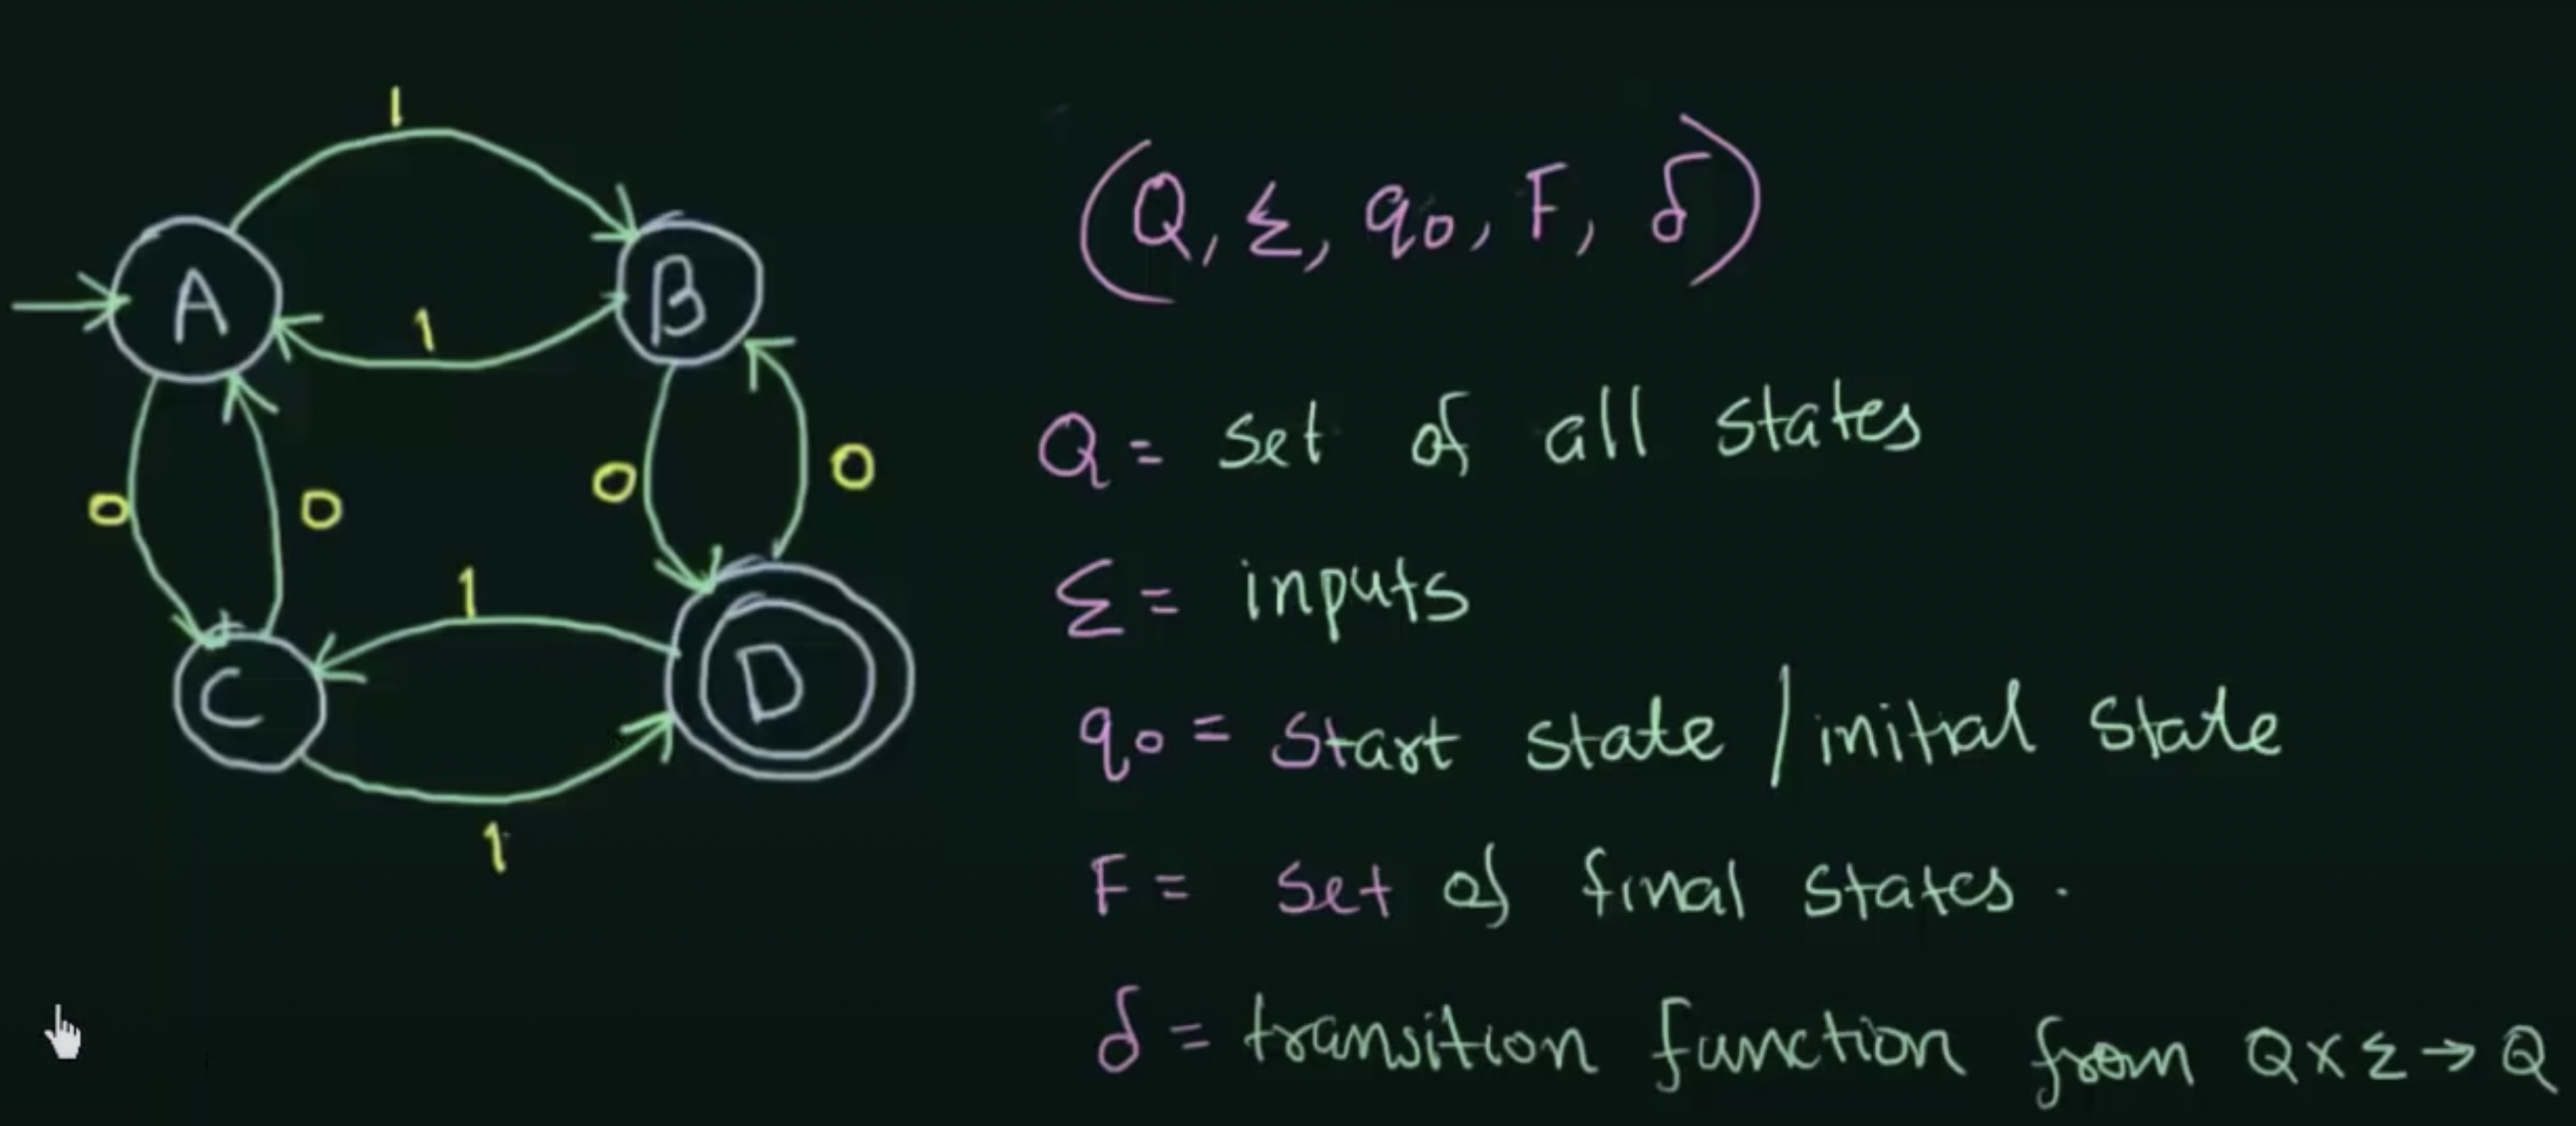 1
A
B
1
0
0
0
0
1
C
D
1
(Q, Σ, q0, F, δ)
Q = set of all states
Σ = inputs
q0 = start state / initial state
F = set of final states.
δ = transition function from Q x Σ → Q